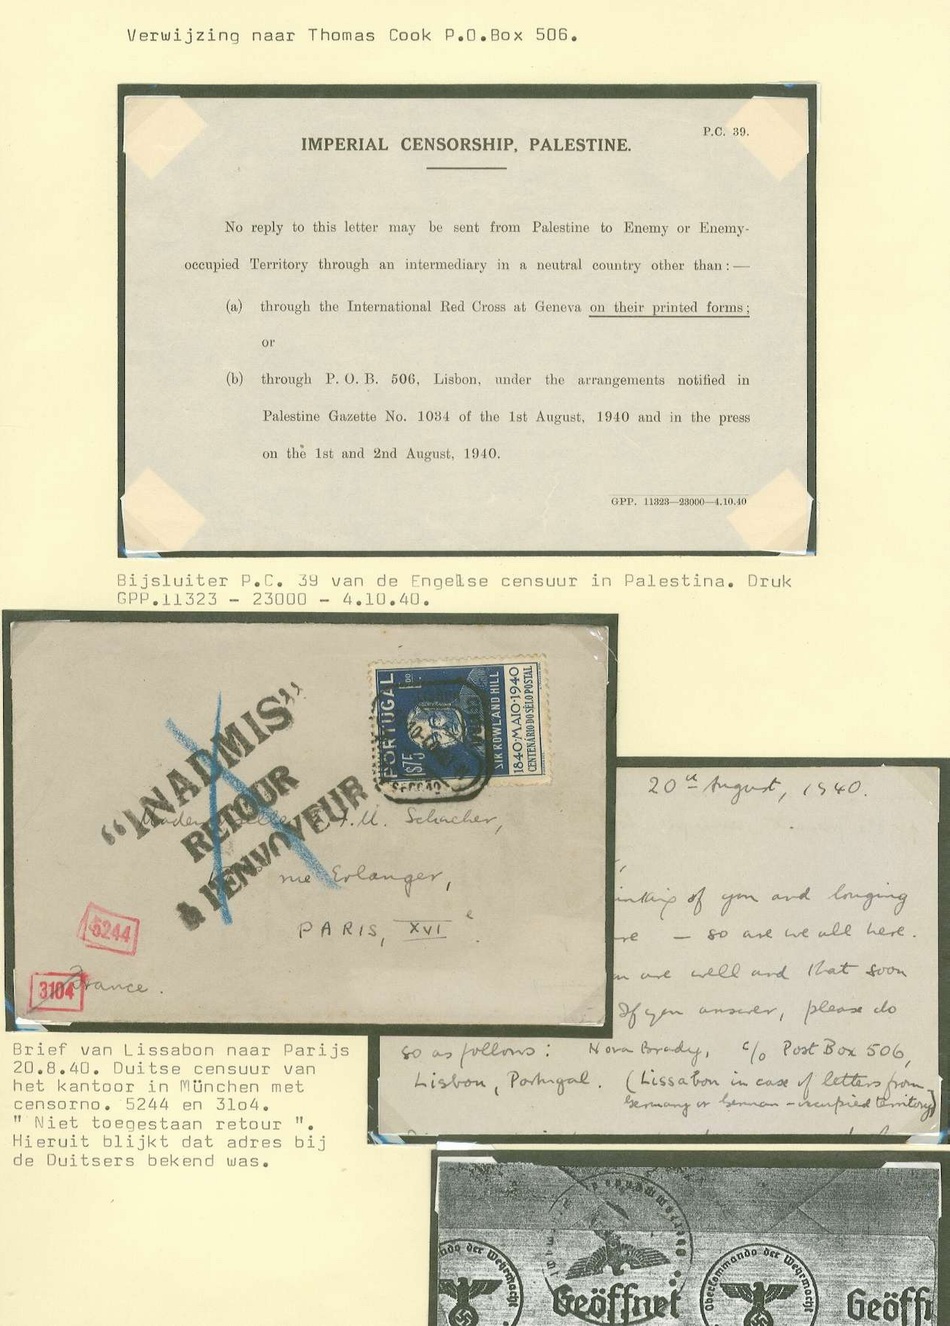 Verwijzing naar Thomas Cook P.O.Box 506.
P.C. 39.
IMPERIAL CENSORSHIP, PALESTINE.
No reply to this letter may be sent from Palestine to Enemy or Enemy-
occupied Territory through an intermediary in a neutral country other than:—
(a) through the International Red Cross at Geneva on their printed forms;
or
(b) through P. O. B. 506, Lisbon, under the arrangements notified in
Palestine Gazette No. 1034 of the 1st August, 1940 and in the press
on the 1st and 2nd August, 1940.
GPP. 11323—23000—4.10.40
Bijsluiter P.C. 39 van de Engelse censuur in Palestina. Druk
GPP.11323 - 23000 - 4.10.40.
PORTUGAL
1$75
SIR ROWLAND HILL
1840·MAIO·1940
CENTENÁRIO DO SÊLO POSTAL
"INADMIS"
RETOUR
à l'ENVOYEUR
Schacher,
rue Erlanger,
PARIS, XVI e
France.
5244
3104
20th August, 1940.
of you and longing
— so are we all here.
are well and that soon
If you answer, please do
so as follows: Nora Brady, c/o Post Box 506,
Lisbon, Portugal. (Lissabon in case of letters from
Germany or German-occupied territory)
Brief van Lissabon naar Parijs
20.8.40. Duitse censuur van
het kantoor in München met
censorno. 5244 en 31o4.
" Niet toegestaan retour ".
Hieruit blijkt dat adres bij
de Duitsers bekend was.
ndo der Wehrmacht
Geöffnet
Oberkommando der Wehrmacht
Geöff